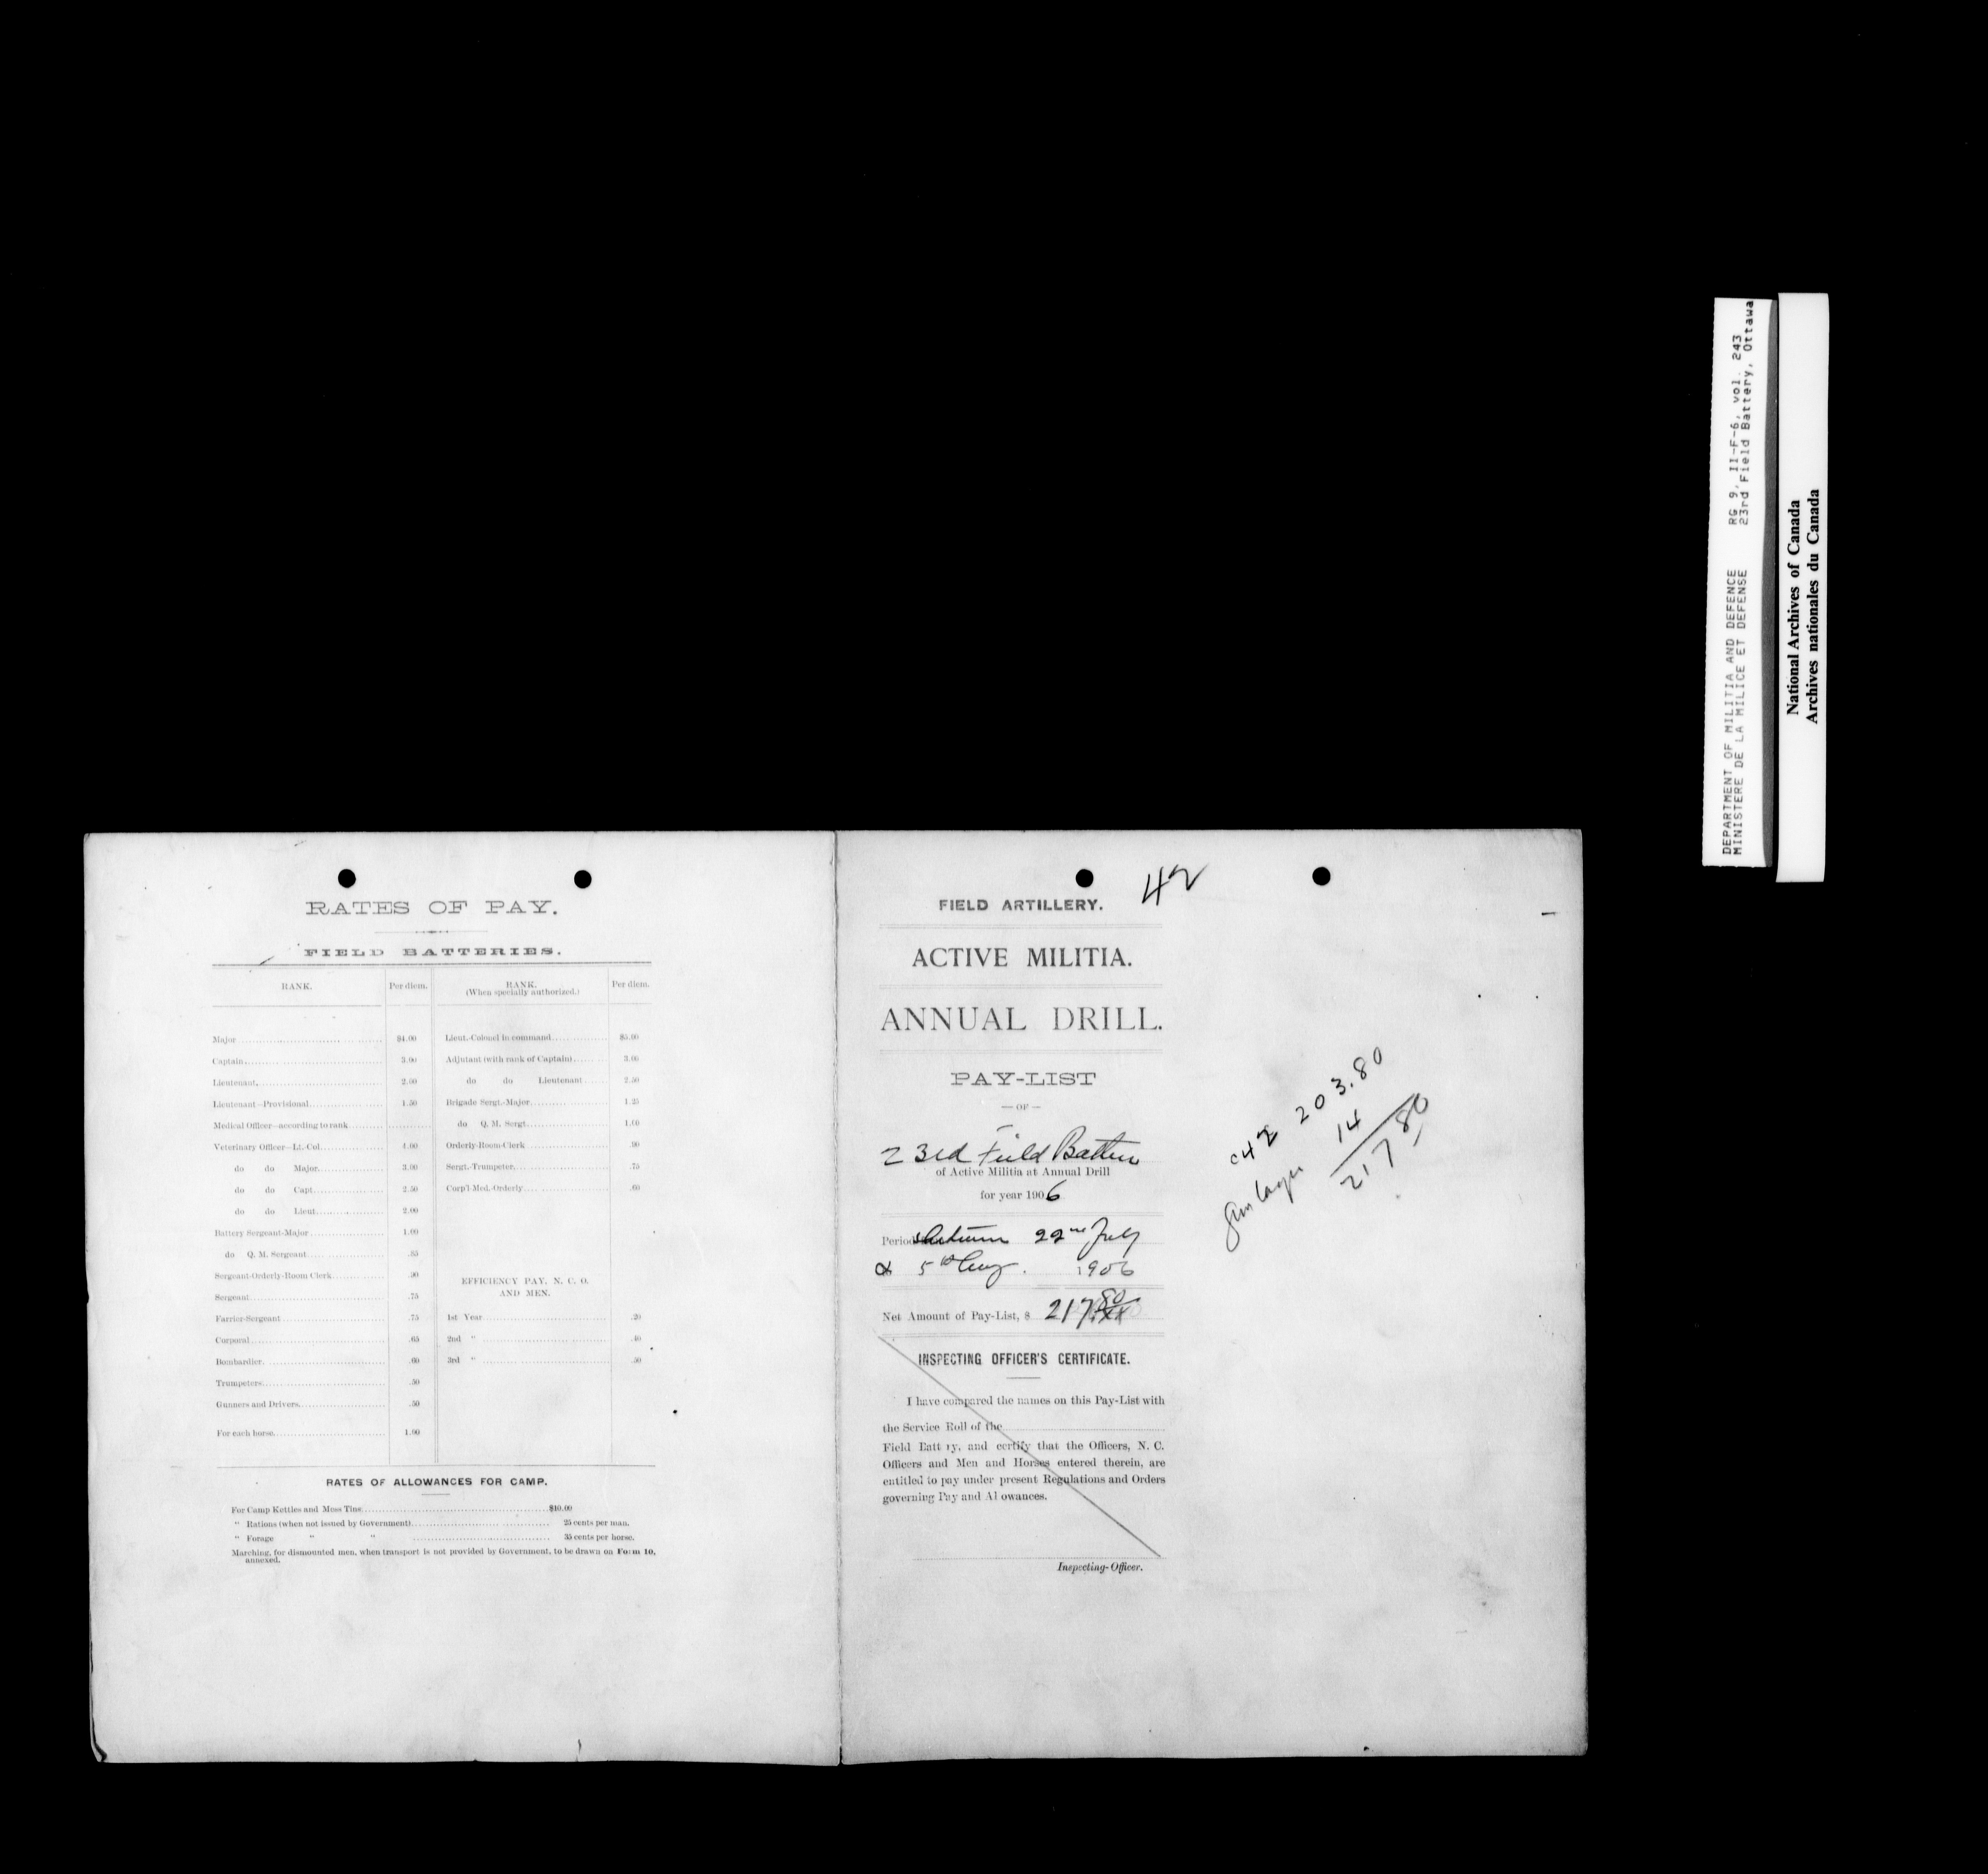 RATES OF PAY.
FIELD BATTERIES.
RANK. Per diem. RANK. (When specially authorized.) Per diem.
Major $4.00 Lieut.-Colonel in command $5.00
Captain 3.00 Adjutant (with rank of Captain) 3.00
Lieutenant 2.00 do do Lieutenant 2.50
Lieutenant—Provisional 1.50 Brigade Sergt.-Major 1.25
Medical Officer—according to rank do Q. M. Sergt.
Veterinary Officer—Lt.-Col. 4.00 Orderly-Room-Clerk .90
do do Major 3.00 Sergt.-Trumpeter .75
do do Capt. 2.50 Corp'l-Med.-Orderly .60
do do Lieut. 2.00
Battery Sergeant-Major 1.00
do Q. M. Sergeant
Sergeant-Orderly-Room Clerk .90
Sergeant .75
Farrier-Sergeant .75
Corporal .65
Bombardier .60
Trumpeters .50
Gunners and Drivers .50
For each horse 1.00
EFFICIENCY PAY, N. C. O.
AND MEN.
1st Year .20
2nd " .40
3rd " .50
RATES OF ALLOWANCES FOR CAMP.
For Camp Kettles and Mess Tins $10.00
" Rations (when not issued by Government) 25 cents per man.
" Forage " " 35 cents per horse.
Marching, for dismounted men, when transport is not provided by Government, to be drawn on Form 10,
annexed.
42
FIELD ARTILLERY.
ACTIVE MILITIA.
ANNUAL DRILL.
PAY-LIST
— OF —
23rd Field Battery
of Active Militia at Annual Drill
for year 1906
Period 22nd July
& 5th Aug. 1906
Net Amount of Pay-List, $ 217.80
INSPECTING OFFICER'S CERTIFICATE.
I have compared the names on this Pay-List with
the Service Roll of the
Field Batt ry, and certify that the Officers, N. C.
Officers and Men and Horses entered therein, are
entitled to pay under present Regulations and Orders
governing Pay and Al owances.
Inspecting-Officer.
203.80
14
217 80
DEPARTMENT OF MILITIA AND DEFENCE RG 9, II-F-6, vol. 243
MINISTERE DE LA MILICE ET DEFENSE 23rd Field Battery, Ottawa
National Archives of Canada
Archives nationales du Canada